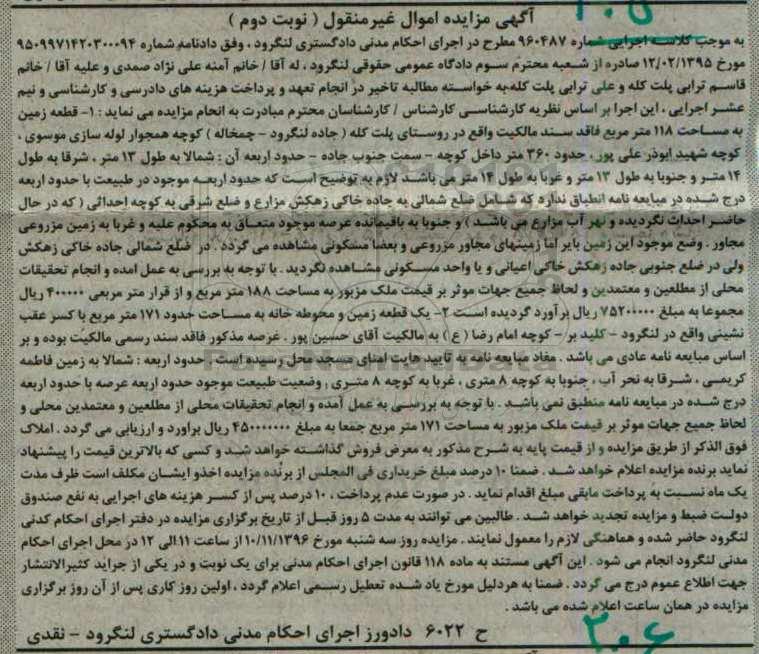 ۲۰۵
آگهی مزایده اموال غیرمنقول ( نوبت دوم )
به موجب کلاسه اجرایی شماره ۹۶۰۴۸۷ مطرح در اجرای احکام مدنی دادگستری لنگرود ، وفق دادنامه شماره ۹۵۰۹۹۷۱۴۲۰۳۰۰۰۹۴
مورخ ۱۲/۰۲/۱۳۹۵ صادره از شعبه محترم سوم دادگاه عمومی حقوقی لنگرود ، له آقا / خانم آمنه علی نژاد صمدی و علیه آقا / خانم
قاسم ترابی پلت کله و علی ترابی پلت کله به خواسته مطالبه تاخیر در انجام تعهد و پرداخت هزینه های دادرسی و کارشناسی و نیم
عشر اجرایی ، این اجرا بر اساس نظریه کارشناسی کارشناس / کارشناسان محترم مبادرت به انجام مزایده می نماید : ۱- قطعه زمین
به مساحت ۱۱۸ متر مربع فاقد سند مالکیت واقع در روستای پلت کله ( جاده لنگرود - چمخاله ) کوچه همجوار لوله سازی موسوی ،
کوچه شهید ابوذر علی پور ، حدود ۳۶۰ متر داخل کوچه - سمت جنوب جاده - حدود اربعه آن : شمالا به طول ۱۳ متر ، شرقا به طول
۱۴ متر و جنوبا به طول ۱۳ متر و غربا به طول ۱۴ متر می باشد لازم به توضیح است که حدود اربعه موجود در طبیعت با حدود اربعه
درج شده در مبایعه نامه انطباق ندارد که شامل ضلع شمالی به جاده خاکی زهکش مزارع و ضلع شرقی به کوچه احداثی ( که در حال
حاضر احداث نگردیده و نهر آب مزارع می باشد ) و جنوبا به باقیمانده عرصه موجود متعلق به محکوم علیه و غربا به زمین مزروعی
مجاور . وضع موجود این زمین بایر اما زمینهای مجاور مزروعی و بعضا مسکونی مشاهده می گردد . در ضلع شمالی جاده خاکی زهکش
ولی در ضلع جنوبی جاده زهکش خاکی اعیانی و یا واحد مسکونی مشاهده نگردید . با توجه به بررسی به عمل امده و انجام تحقیقات
محلی از مطلعین و معتمدین و لحاظ جمیع جهات موثر بر قیمت ملک مزبور به مساحت ۱۸۸ متر مربع و از قرار متر مربعی ۴۰۰۰۰۰ ریال
مجموعا به مبلغ ۷۵۲۰۰۰۰۰ ریال برآورد گردیده است ۲- یک قطعه زمین و محوطه خانه به مساحت حدود ۱۷۱ متر مربع با کسر عقب
نشینی واقع در لنگرود - کلید بر - کوچه امام رضا ( ع ) به مالکیت آقای حسین پور . عرصه مذکور فاقد سند رسمی مالکیت بوده و بر
اساس مبایعه نامه عادی می باشد . مفاد مبایعه نامه به تایید هایت امنای مسجد محل رسیده است . حدود اربعه : شمالا به زمین فاطمه
کریمی ، شرقا به نحر آب ، جنوبا به کوچه ۸ متری ، غربا به کوچه ۸ متری ، وضعیت طبیعت موجود حدود اربعه عرصه با حدود اربعه
درج شده در مبایعه نامه منطبق نمی باشد . با توجه به بررسی به عمل آمده و انجام تحقیقات محلی از مطلعین و معتمدین محلی و
لحاظ جمیع جهات موثر بر قیمت ملک مزبور به مساحت ۱۷۱ متر مربع جمعا به مبلغ ۴۵۰۰۰۰۰۰۰ ریال براورد و ارزیابی می گردد . املاک
فوق الذکر از طریق مزایده و از قیمت پایه به شرح مذکور به معرض فروش گذاشته خواهد شد و کسی که بالاترین قیمت را پیشنهاد
نماید برنده مزایده اعلام خواهد شد . ضمنا ۱۰ درصد مبلغ خریداری فی المجلس از برنده مزایده اخذو ایشان مکلف است ظرف مدت
یک ماه نسبت به پرداخت مابقی مبلغ اقدام نماید . در صورت عدم پرداخت ، ۱۰ درصد پس از کسر هزینه های اجرایی به نفع صندوق
دولت ضبط و مزایده تجدید خواهد شد . طالبین می توانند به مدت ۵ روز قبل از تاریخ برگزاری مزایده در دفتر اجرای احکام کدنی
لنگرود حاضر شده و هماهنگی لازم را معمول نمایند . مزایده روز سه شنبه مورخ ۱۰/۱۱/۱۳۹۶ از ساعت ۱۱ الی ۱۲ در محل اجرای احکام
مدنی لنگرود انجام می شود . این آگهی مستند به ماده ۱۱۸ قانون اجرای احکام مدنی برای یک نوبت و در یکی از جراید کثیرالانتشار
جهت اطلاع عموم درج می گردد . ضمنا به هردلیل مورخ یاد شده تعطیل رسمی اعلام گردد ، اولین روز کاری پس از آن روز برگزاری
مزایده در همان ساعت اعلام شده می باشد .
ح ۶۰۲۲ دادورز اجرای احکام مدنی دادگستری لنگرود - نقدی
۲۰۶